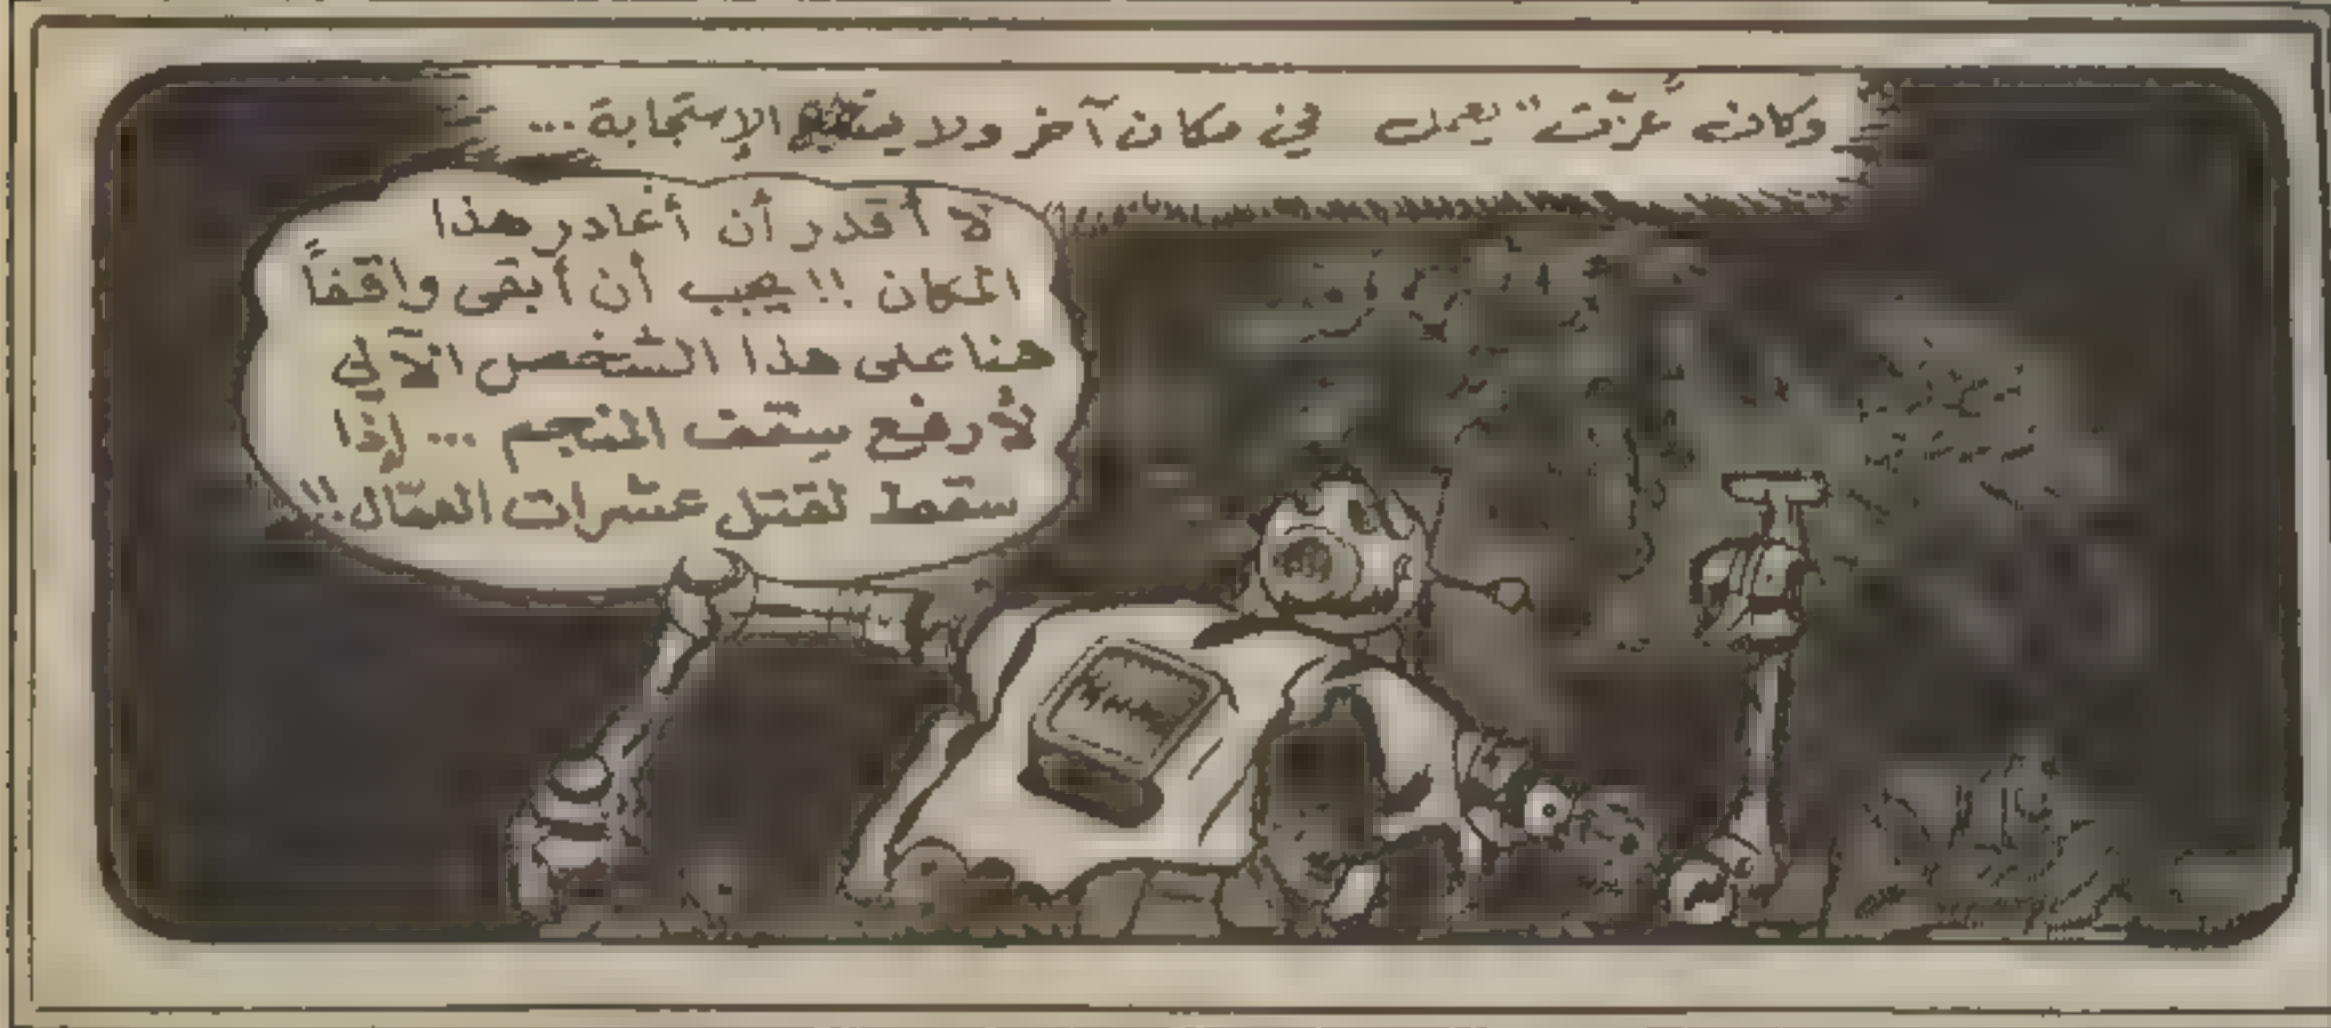 وكان "عزّت" يعمل في مكان آخر ولا يستطيع الإستجابة ...
لا أقدر أن أغادر هذا
المكان !! يجب أن أبقى واقفاً
هنا على هذا الشخص الآلي
لأرفع سقف المنجم ... إذا
سقط لقتل عشرات العمّال !!